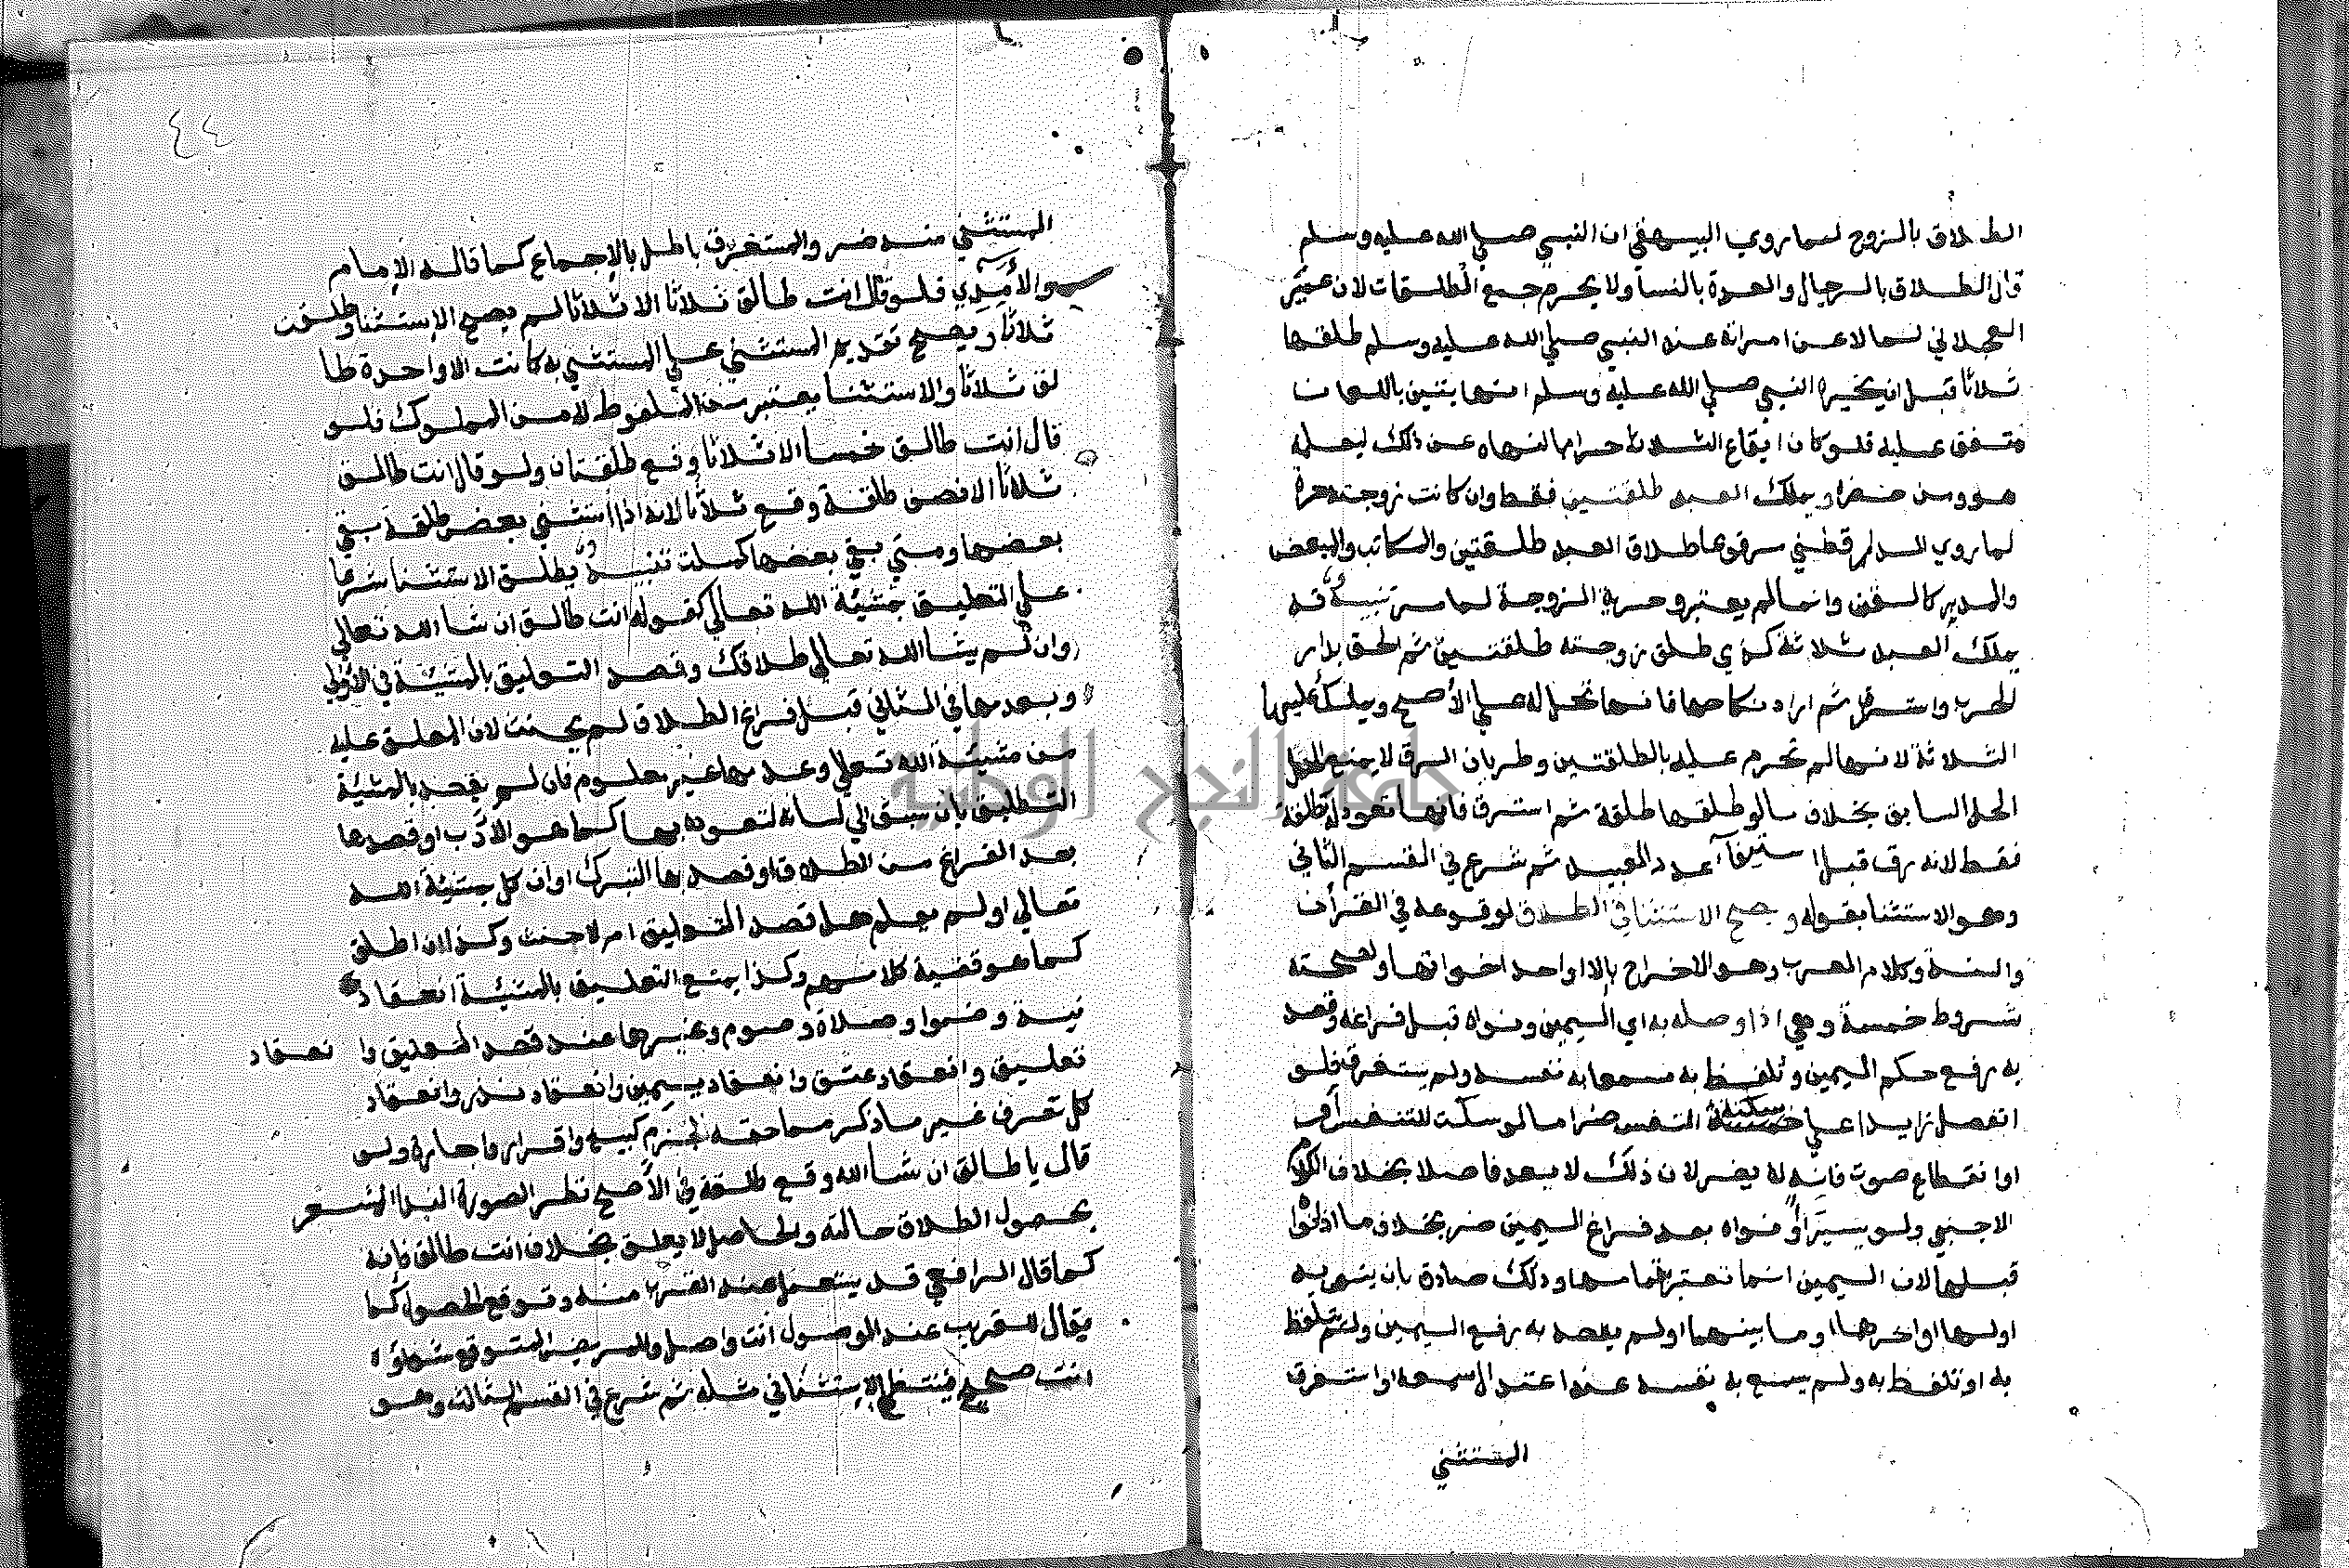 الطلاق بالزوج لما روي البيهقي ان النبي صلي الله عليه وسلم
قال الطلاق بالرجال والعدة بالنسا ولا يحرم جمع الطلقات لان عمير
العجلاني لما لاعن امراته عند النبي صلي الله عليه وسلم طلقها
ثلاثا قبل ان يخبره النبي صلي الله عليه وسلم انها بتبين باللعان
متفق عليه فلو كان ايقاع الثلاث حراما لنهاه عن ذلك ليعلمه
هو ومن حضر ويملك العبد طلقتين فقط وان كانت زوجته حرة
لما روي الدارقطني مرفوعا طلاق العبد طلقتين والمكاتب والمبعض
والمدبر كالقن وانما لم يعتبرو حرية الزوجة لما مر تنبيه قد
يملك العبد ثلاثة كذي طلق زوجته طلقتين ثم لحق بدار
الحرب واسترق ثم اراد نكاحها فانها تحل له علي الأصح ويملك عليها
الثلاثة لانها لم تحرم عليه بالطلقتين وطريان الرق لا يمنع الحل
الحل السابق بخلاف مالو طلقها طلقة ثم استرق فانها تعود له بطلقة
فقط لانه رق قبل استيفآء عدد العبيد ثم شرع في القسم الثاني
وهو الاستثنا بقوله و يصح الاستثنا في الطلاق لوقوعه في القرآن
والسنة وكلام العرب وهو الاخراج بالا او احد اخواتها ولصحته
شروط خمسة وهي اذا وصله به اي اليمين ونواه قبل فراغه وقصد
به رفع حكم اليمين وتلفظ به مسمعا به نفسه ولم يستغرق فلو
انفصل زايدا علي سكتة التنفس ضر اما لو سكت للتنفس أو
او انقطاع صوت فانه لا يضر لان ذلك لا يعد فاصلا بخلاف الكلام
الاجنبي ولو يسيرا أو نواه بعد فراغ اليمين ضر بخلاف ما اذا نواه
قبلها لان اليمين انما تعتبر بتمامها وذلك صادق بان ينويه
اولها او اخرها او ما بينهما او لم يقصد به رفع اليمين ولم يتلفظ
به او تلفظ به ولم يسمع به نفسه عند اعتدال سمعه او استغرق
المستثني
٤٤
المستثني منه ضر والمستغرق باطل بالإجماع كما قاله الإمام
والآمدي فلو قال انت طالق ثلاثا الا ثلاثا لم يصح الإستثنا وطلقت
ثلاثا ويصح تقديم المستثني علي المستثني به كانت الا واحدة طا
لق ثلاثا والاستثنا يعتبر من الملفوظ لا من المملوك فلو
قال انت طالق خمسا الا ثلاثا وقع طلقتان ولو قال انت طالق
ثلاثا الا نصف طلقة وقع ثلاثا لانه اذا استثني بعض طلقة بقي
بعضها ومتي بقي بعضها كملت تنبيه يطلق الاستثنا شرعا
علي التعليق بمشيئة الله تعالي كقوله انت طالق ان شا الله تعالي
وان لم يشا الله تعالي طلاقك وقصد التعليق بالمشيئة في الأولي
وبعدمها في الثاني قبل فراغ الطلاق لم يحنث لان المعلق عليه
من مشيئة الله تعالي وعدمها غير معلوم فان لم يقصد بالمشيئة
التعليق بان سبق الي لسانه لتعوده بها كما هو الادب او قصدها
بعد الفراغ من الطلاق او قصد بها التبرك او ان كل بمشيئة الله
تعالي او لم يعلم هل قصد التعليق ام لا حنث وكذا ان اطلق
كما هو قضية كلامهم وكذا يمنع التعليق بالمشيئة انعقاد
نية وضوا وصلاة وصوم وغيرها عند قصد التعليق وا نعقاد
تعليق وانعقاد عتق وانعقاد يمين وانعقاد نذر وانعقاد
كل تصرف غير ما ذكر مما حقه الجزم كبيع واقرار واجارة ولو
قال يا طالق ان شا الله وقع طلقة في الأصح نظر الصورة الندا المشعر
بحصول الطلاق حالته والحاصل لا يعلق بخلاف انت طالق فانه
كما قال الرافعي قد يستعمل عند القرب منه وتوقع الحصول كما
يقال للقريب عند الوصول انت واصل وللمريض المتوقع شفاؤه
انت صحيح فينتظم الإستثنا في مثله ثم شرع في القسم الثالث وهو
جامعة النجاح الوطنية